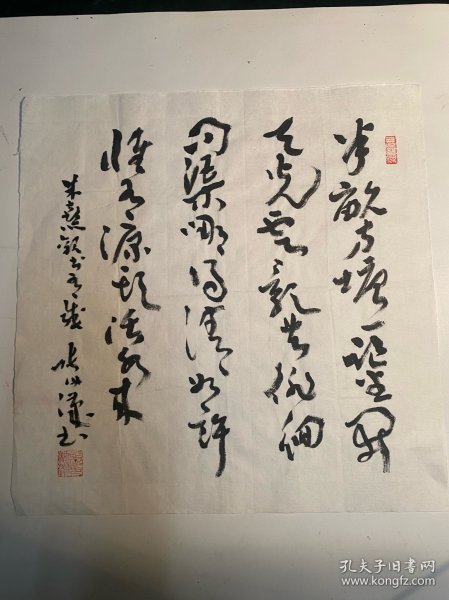 半畝方塘一鑑開
天光雲影共徘徊
問渠哪得清如許
惟有源頭活水來
朱熹觀書有感 書
孔夫子旧书网
www.kongfz.com